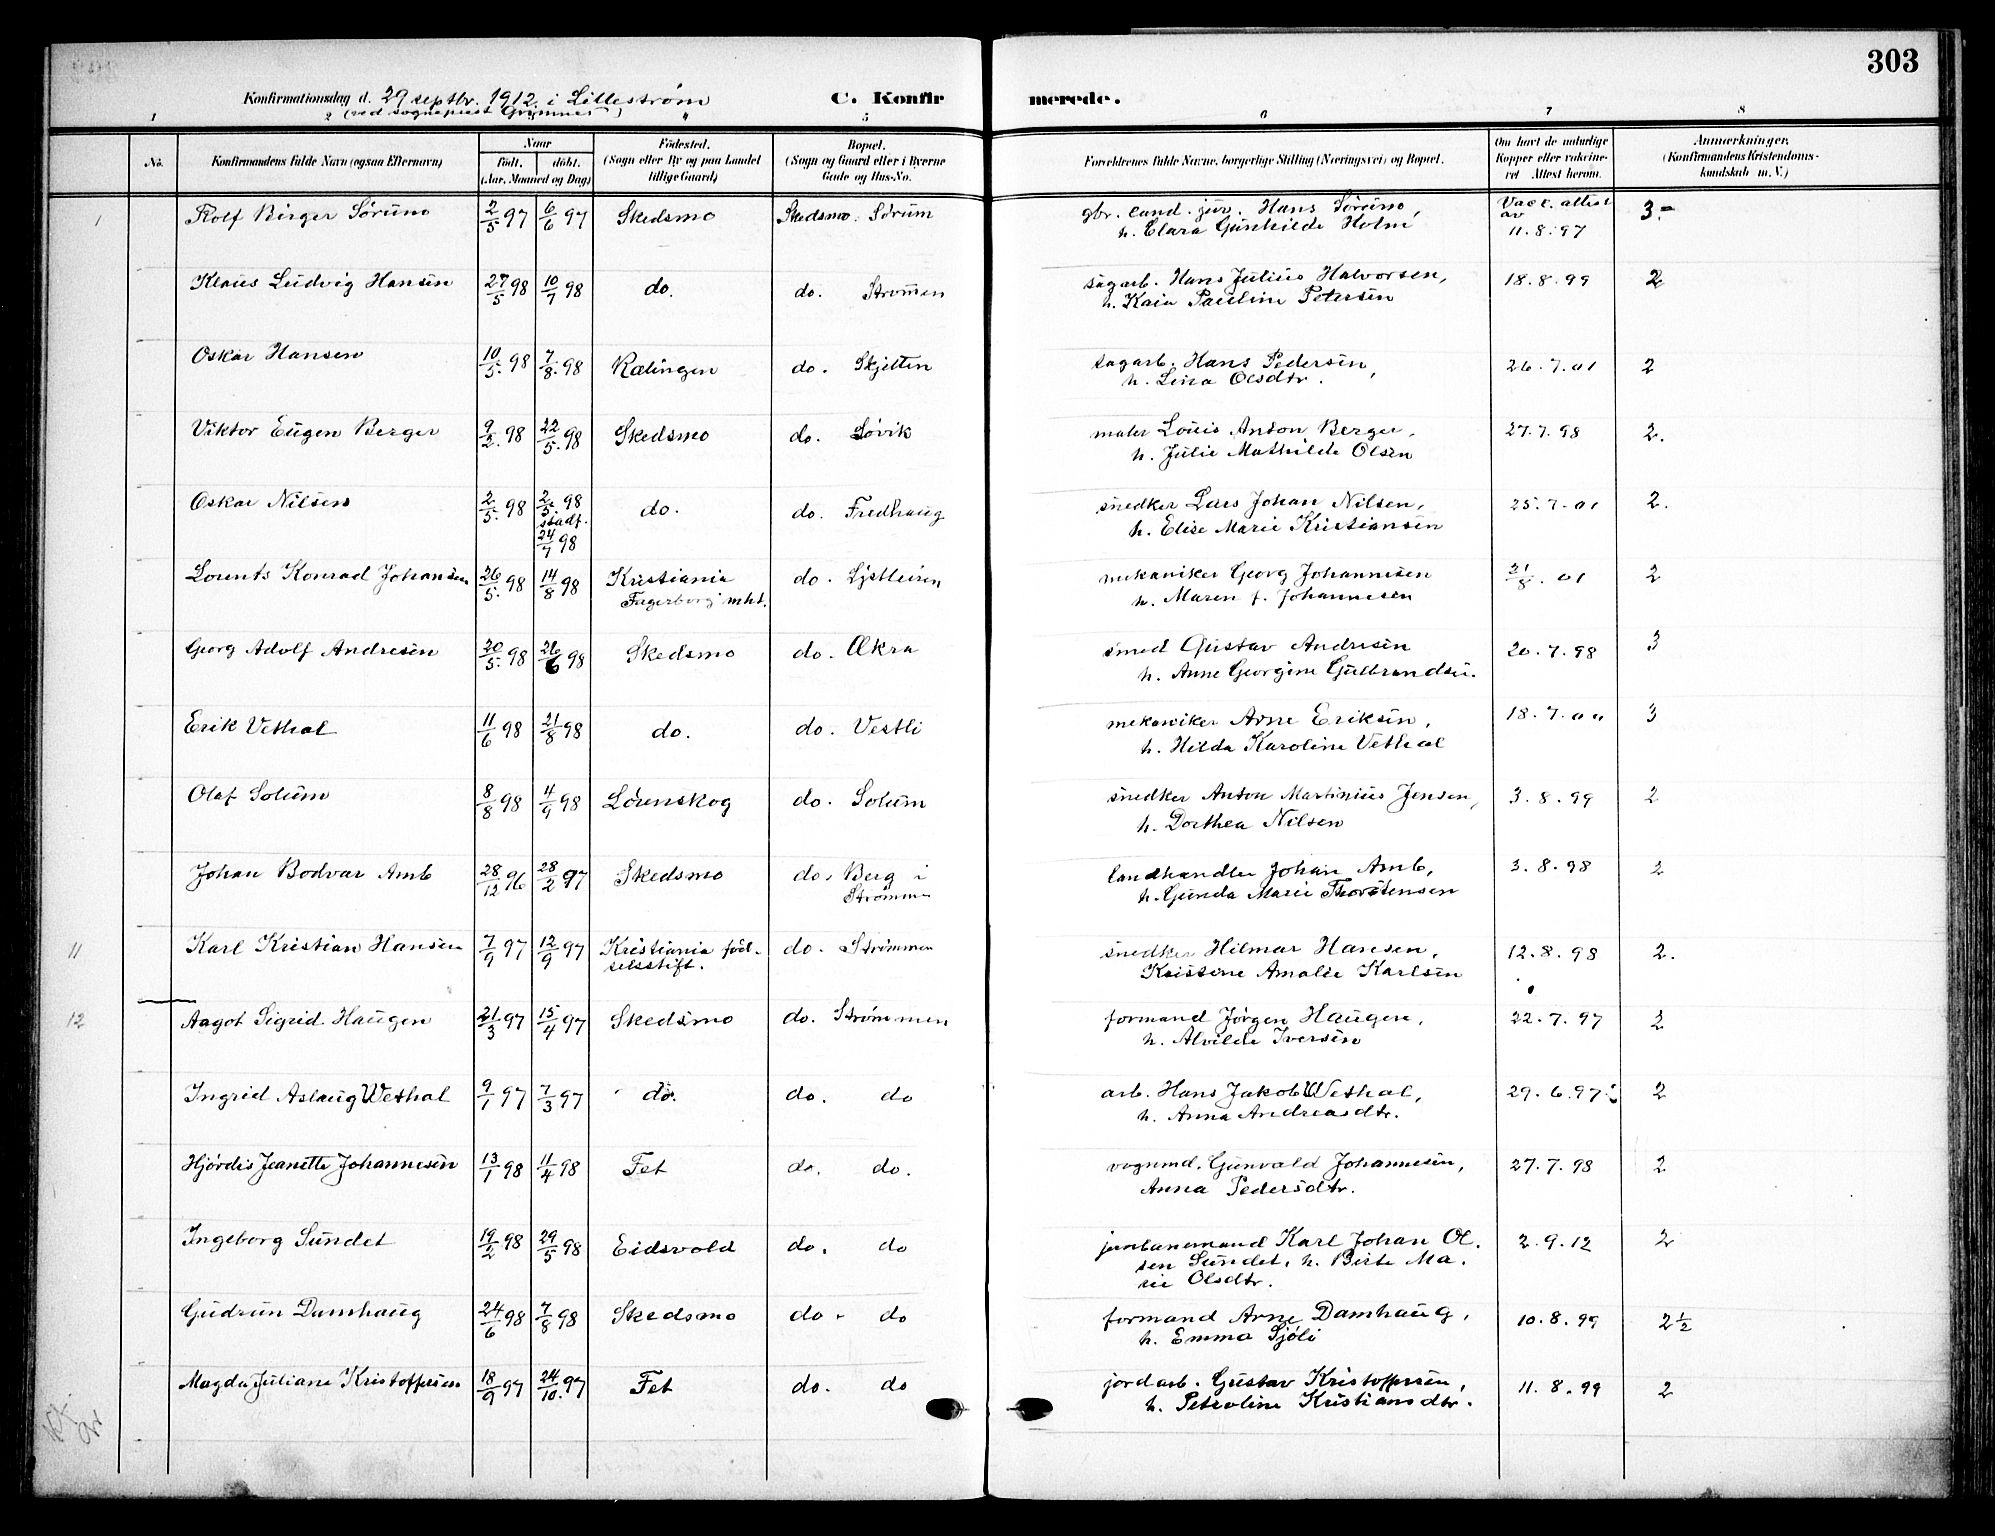 303
Konfirmationsdag d. 29 septbr. 1912 i Lilleström C. Konfirmerede.
(ved sogneprest Grimnes)
1 2 3 4 5 6 7 8
No. Konfirmandens fulde Navn (ogsaa Efternavn) Naar født. døbt. (Aar, Maaned og Dag) Fødested. (Sogn eller By og paa Landet tillige Gaard) Bopæl. (Sogn og Gaard eller i Byerne Gade og Hus-No. Forældrenes fulde Navne, borgerlige Stilling (Næringsvei) og Bopæl. Om havt de naturlige Kopper eller vakcineret. Attest herom. Anmærkninger. (Konfirmandens Kristendomskundskab m. V.)
1 Rolf Birger Sørum 2/5 97 6/6 97 Skedsmo Skedsmo. Sørum gbr. cand. jur. Hans Sørum, Vacc. attest av 3-
h. Clara Gunhilde Holm 11.8.97
Klaus Ludvig Hansen 27/5 98 10/7 98 do. do. Strømmen sagarb. Hans Julius Halvorsen, 18.8.99 2
h. Kaia Pauline Petersen
Oskar Hansen 10/5. 98 7/8. 98 Rælingen do. Skjetten sagarb. Hans Pedersen, 26.7.01 2
h. Lina Olsdtr.
Viktor Eugen Berger 9/2. 98 22/5. 98 Skedsmo do. Løvik maler Louis Anton Berger, 27.7.98 2.
h. Julie Mathilde Olsen
Oskar Nilsen 2/5. 98 2/5. 98 do. do. Fredhaug snedker Lars Johan Nilsen, 25.7.01 2.
stadf. 24/7 98 h. Elise Marie Kristiansen
Lorents Konrad Johansen 26/5. 98 14/8 98 Kristiania do. mekaniker Georg Johannesen 21/8. 01 2
Fagerborg mht. h. Maren f. Johannesen
Georg Adolf Andresen 20/5. 98 26/6 98 Skedsmo do. Økra smed Gustav Andresen 20.7.98 3
h. Anne Georgine Gulbrandsen.
Erik Vethal 11/6 98 21/8 98 do. do. Vestli mekaniker Arne Eriksen, 18.7.00 3
h. Hilda Karoline Vethal
Olaf Solum 8/8 98 4/9 98 Lørenskog do. Solum snedker Anton Martinius Jensen, 3.8.99 2
h. Dorthea Nilsen
Johan Bodvar Amb 28/12 96 28/2 97 Skedsmo do. Berg i landhandler Johan Amb, 3.8.98 2
Strømmen h. Gunda Marie Thorstensen
11 Karl Kristian Hansen 7/9 97 12/9 97 Kristiania fød- do. Strømmen snedker Hilmar Hansen, 12.8.98 2.
selsstift. Kristine Amalie Karlsen
12 Aagot Sigrid Haugen 21/3 97 15/4 97 Skedsmo do. Strømmen formand Jørgen Haugen, 22.7.97 2
h. Alvilde Iversen
Ingrid Aslaug Wethal 9/1 97 7/3 97 do. do. do arb. Hans Jakob Wethal, 29.6.97 2
h. Anna Andreasdtr.
Hjørdis Jeanette Johannesen 13/1 98 11/4 98 Fet do. do. vognmd. Gunvald Johannesen, 27.7.98 2
Anna Pedersdtr.
Ingeborg Sundet 19/2 98 29/5 98 Eidsvold do. do jernbanemand Karl Johan Ol- 2.9.12 2
sen Sundet, h. Birte Ma-
rie Olsdtr.
Gudrun Damhaug 24/6 98 7/8 98 Skedsmo do. do formand Arne Damhaug, 10.8.99 2½
h. Emma Sjøli
Magda Juliane Kristoffersen 18/9 97 24/10. 97 Fet do. do jordarb. Gustav Kristoffersen, 11.8.99 2
h. Petroline Kristiansdtr.